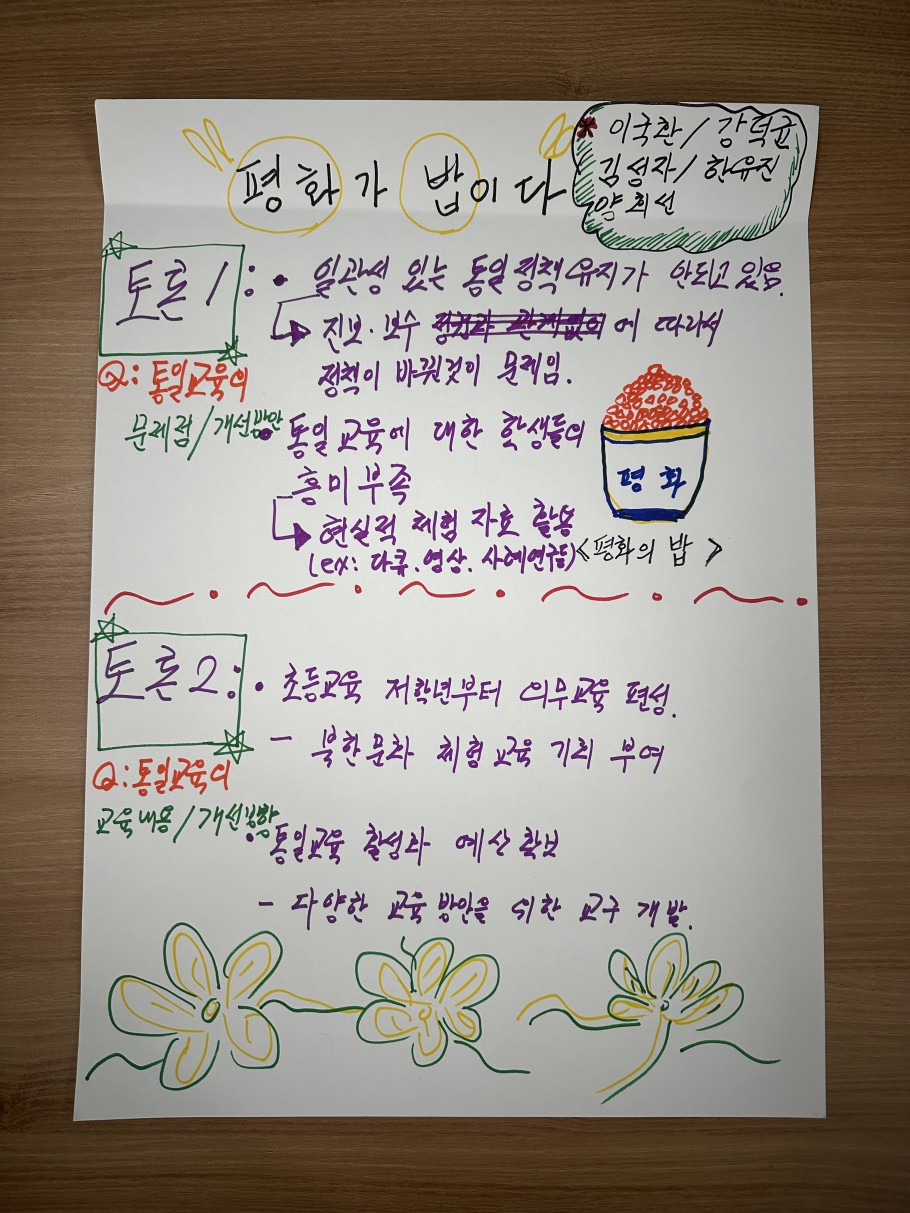 평화가 밥이다
* 이국환 / 강덕균
김성자 / 한유진
양희선
토론 1:
Q: 통일교육의
문제점 / 개선방안
• 일관성 있는 통일정책유지가 안되고 있음.
진보·보수 에 따라서
정책이 바뀐것이 문제임.
• 통일교육에 대한 학생들의
흥미부족
현실적 체험 자료 활용
(ex: 다큐.영상.사례연구등)
평화
<평화의 밥>
토론 2:
Q: 통일교육의
교육내용 / 개선방향
• 초등교육 저학년부터 의무교육 편성.
- 북한문화 체험교육 기회 부여
• 통일교육 활성화 예산 확보
- 다양한 교육방안을 위한 교구 개발.